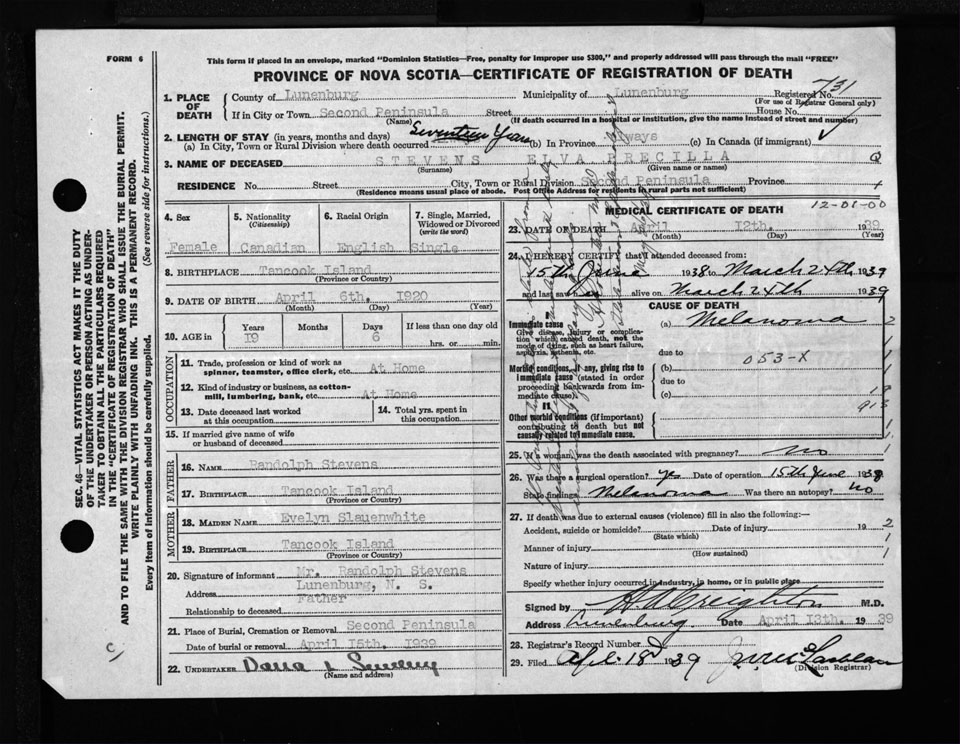 FORM 6
This form if placed in an envelope, marked "Dominion Statistics—Free, penalty for improper use $300," and properly addressed will pass through the mail "FREE"
PROVINCE OF NOVA SCOTIA—CERTIFICATE OF REGISTRATION OF DEATH
731
1. PLACE OF DEATH
County of Lunenburg Municipality of Lunenburg Registered No.
(For use of Registrar General only)
If in City or Town Second Peninsula Street House No.
(Name) (If death occurred in a hospital or institution, give the name instead of street and number)
2. LENGTH OF STAY (in years, months and days)
(a) In City, Town or Rural Division where death occurred Seventeen Years (b) In Province Always (c) In Canada (if immigrant)
3. NAME OF DECEASED STEVENS ELVA PRECILLA
(Surname) (Given name or names)
RESIDENCE No. Street City, Town or Rural Division Second Peninsula Province
(Residence means usual place of abode. Post Office Address for residents in rural parts not sufficient)
4. Sex
Female
5. Nationality
(Citizenship)
Canadian
6. Racial Origin
English
7. Single, Married, Widowed or Divorced
(write the word)
Single
8. BIRTHPLACE Tancook Island
(Province or Country)
9. DATE OF BIRTH April 6th. 1920
(Month) (Day) (Year)
10. AGE in
Years Months Days If less than one day old
19 6 hrs. or min.
OCCUPATION
11. Trade, profession or kind of work as
spinner, teamster, office clerk, etc. At Home
12. Kind of industry or business, as cotton-
mill, lumbering, bank, etc. At Home
13. Date deceased last worked
at this occupation
14. Total yrs. spent in
this occupation
15. If married give name of wife
or husband of deceased
FATHER
16. NAME Randolph Stevens
17. BIRTHPLACE Tancook Island
(Province or Country)
MOTHER
18. MAIDEN NAME Evelyn Slauenwhite
19. BIRTHPLACE Tancook Island
(Province or Country)
20. Signature of informant Mr. Randolph Stevens
Address Lunenburg, N. S.
Father
Relationship to deceased
21. Place of Burial, Cremation or Removal Second Peninsula
Date of burial or removal April 15th. 1939
22. UNDERTAKER Dana L Sweeny
(Name and address)
MEDICAL CERTIFICATE OF DEATH 12-01-00
23. DATE OF DEATH April 12th. 1939
(Month) (Day) (Year)
24. I HEREBY CERTIFY that I attended deceased from:
15th June 1938 to March 24th 1939
and last saw h alive on March 24th 1939
CAUSE OF DEATH
Immediate cause
Give disease, injury or complica-
tion which caused death, not the
mode of dying, such as heart failure,
asphyxia, asthenia, etc.
(a) Melanoma
due to
053-X
Morbid conditions, if any, giving rise to
immediate cause (stated in order
proceeding backwards from im-
mediate cause).
(b)
due to
(c)
II
Other morbid conditions (if important)
contributing to death but not
causally related to immediate cause.
25. If a woman, was the death associated with pregnancy? no
26. Was there a surgical operation? yes Date of operation 15th June 1938
State findings Melanoma Was there an autopsy? no
27. If death was due to external causes (violence) fill in also the following:—
Accident, suicide or homicide? Date of injury 19
(State which)
Manner of injury
(How sustained)
Nature of injury
Specify whether injury occurred in industry, in home, or in public place
Signed by H A Creighton M.D.
Address Lunenburg Date April 13th. 1939
28. Registrar's Record Number
29. Filed Apl. 18 1939
(Division Registrar)
SEC. 46—VITAL STATISTICS ACT MAKES IT THE DUTY
OF THE UNDERTAKER OR PERSON ACTING AS UNDER-
TAKER TO OBTAIN ALL THE PARTICULARS REQUIRED
IN THE "CERTIFICATE OF REGISTRATION OF DEATH"
AND TO FILE THE SAME WITH THE DIVISION REGISTRAR WHO SHALL ISSUE THE BURIAL PERMIT.
WRITE PLAINLY WITH UNFADING INK. THIS IS A PERMANENT RECORD.
Every item of information should be carefully supplied. (See reverse side for instructions.)